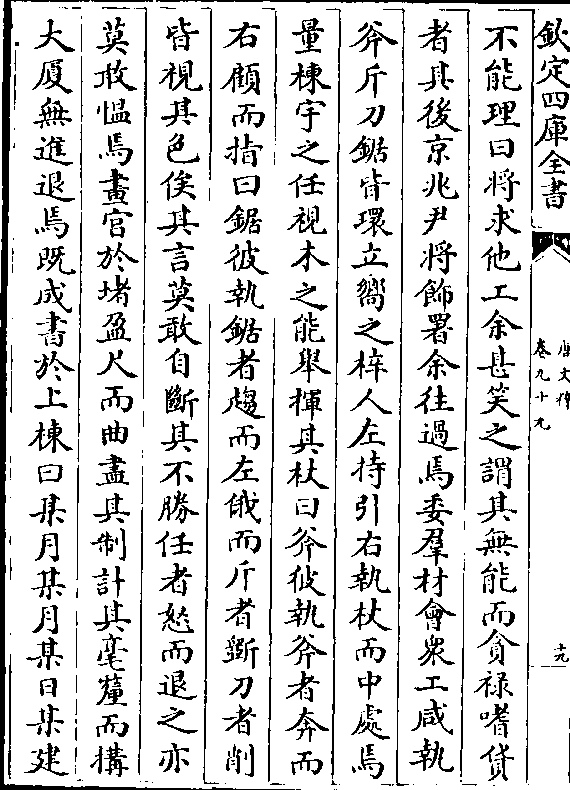 欽定四庫全書
唐文粹
卷九十九
十九
不能理曰將求他工余甚笑之謂其無能而貪禄嗜貨
者其後京兆尹將飾署余往過焉委羣材會衆工咸執
斧斤刀鋸皆環立嚮之梓人左持引右執杖而中處焉
量棟宇之任視木之能舉揮其杖曰斧彼執斧者奔而
右顧而指曰鋸彼執鋸者趨而左俄而斤者斵刀者削
皆視其色俟其言莫敢自斷其不勝任者怒而退之亦
莫敢愠焉畫宫於堵盈尺而曲盡其制計其毫釐而構
大厦無進退焉既成書於上棟曰某月某月某日某建